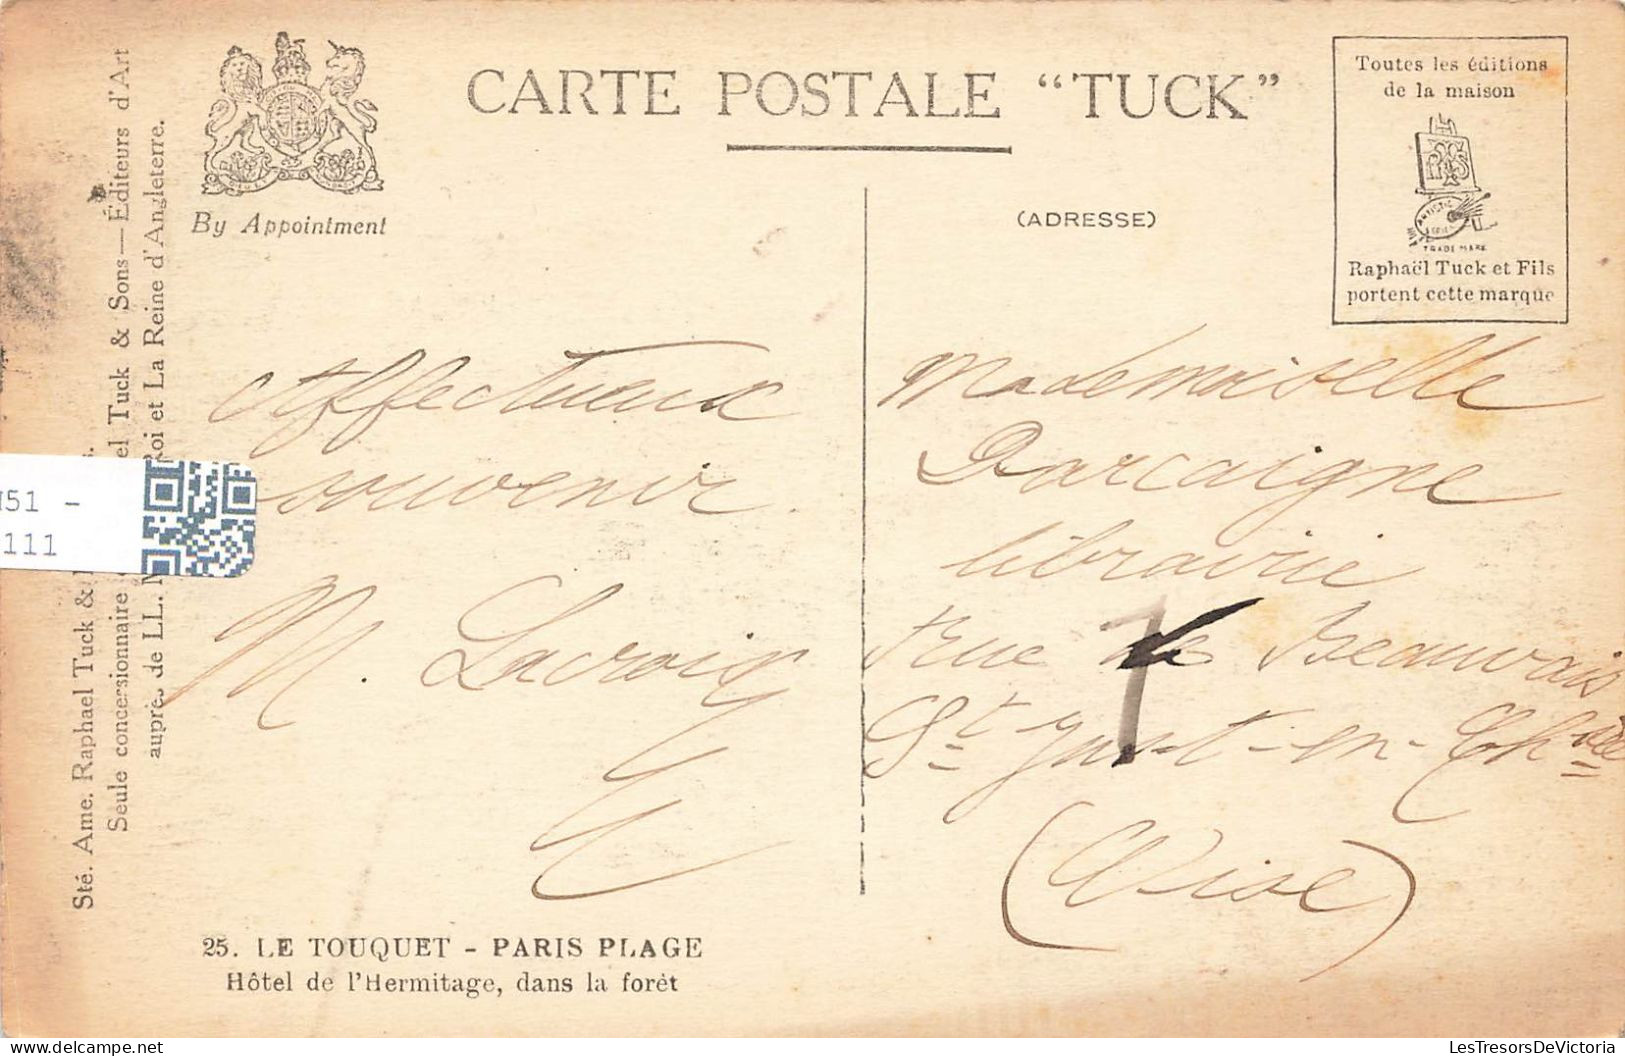 CARTE POSTALE “TUCK”
By Appointment
(ADRESSE)
Toutes les éditions
de la maison
TRADE MARK
Raphaël Tuck et Fils
portent cette marque
Sté. Ame. Raphael Tuck &
Seule concessionnaire el Tuck & Sons—Éditeurs d'Art
auprès de LL. Roi et La Reine d'Angleterre.
Affectueux
souvenir.
M. Lacroix
Mademoiselle
Darcaigne
librairie
rue de Beauvais
St Just-en-Chée
(Oise)
25. LE TOUQUET - PARIS PLAGE
Hôtel de l'Hermitage, dans la forêt
51 -
111
LesTresorsDeVictoria